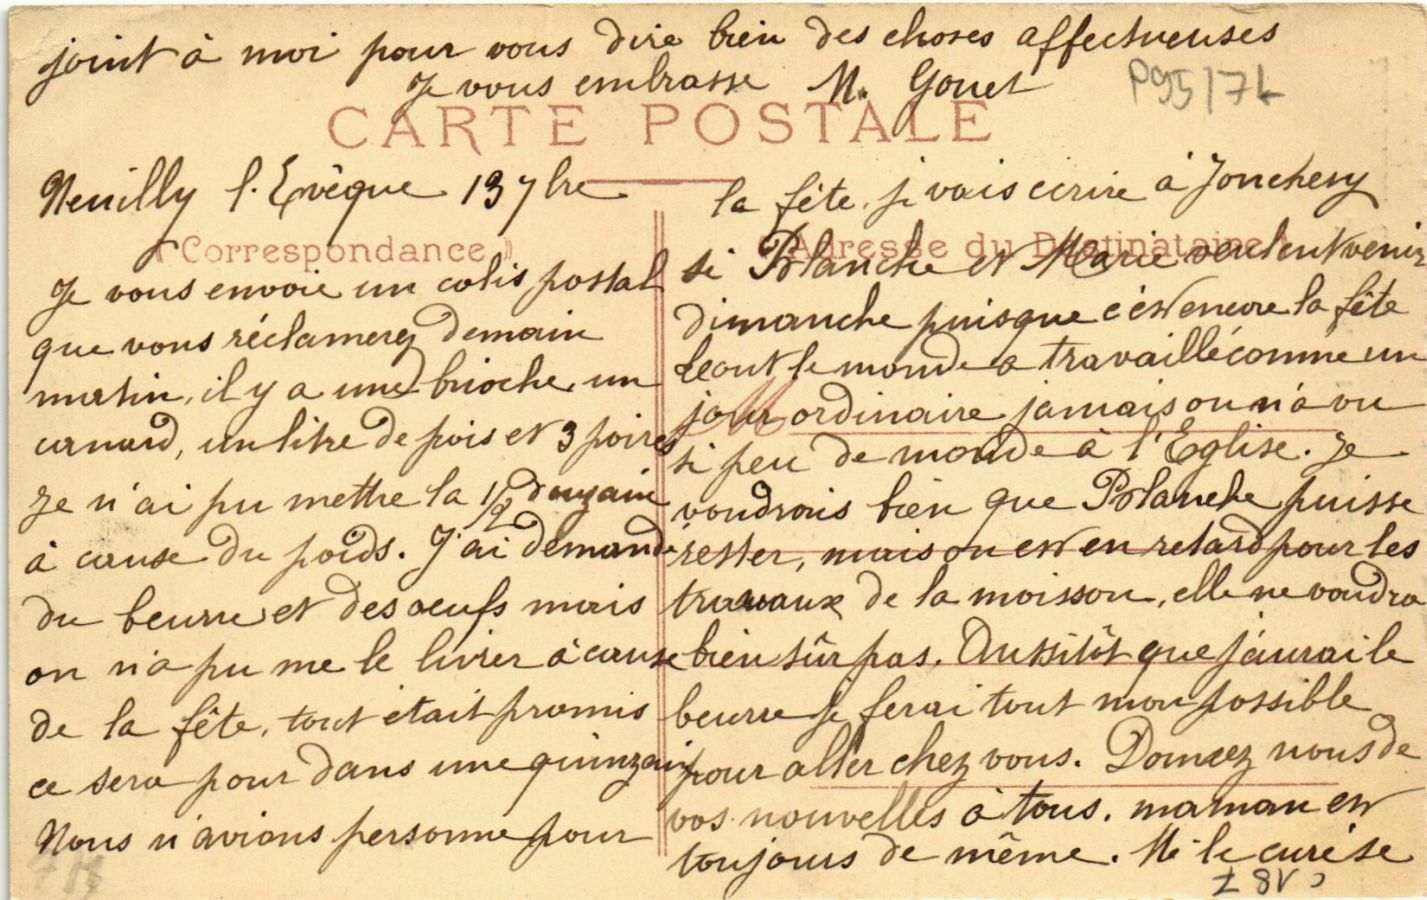 joint à moi pour vous dire bien des choses affectueuses
Je vous embrasse M. Gouet
P95/74
CARTE POSTALE
Neuilly l. Evêque 13 7bre
Correspondance
Je vous envoie un colis postal
que vous réclamerez demain
matin, il y a une brioche, un
canard, un litre de pois et 3 poires
Je n'ai pu mettre la 1/2 douzaine
à cause du poids. J'ai demandé
du beurre et des oeufs mais
on n'a pu me le livrer à cause
de la fête, tout était promis
ce sera pour dans une quinzaine
Nous n'avions personne pour
la fête. je vais ecrire à Jonchery
Adresse du Destinataire
si Blanche et Marie veulent venir
dimanche puisque c'est encore la fête
tout le monde a travaillé comme un
jour ordinaire jamais on n'a vu
M
si peu de monde à l'Eglise. Je
voudrais bien que Blanche puisse
rester, mais on est en retard pour les
travaux de la moisson, elle ne voudra
bien sûr pas. Aussitôt que j'aurai le
beurre je ferai tout mon possible
pour aller chez vous. Donnez nous de
vos nouvelles à tous. maman est
toujours de même. Mr le curé se